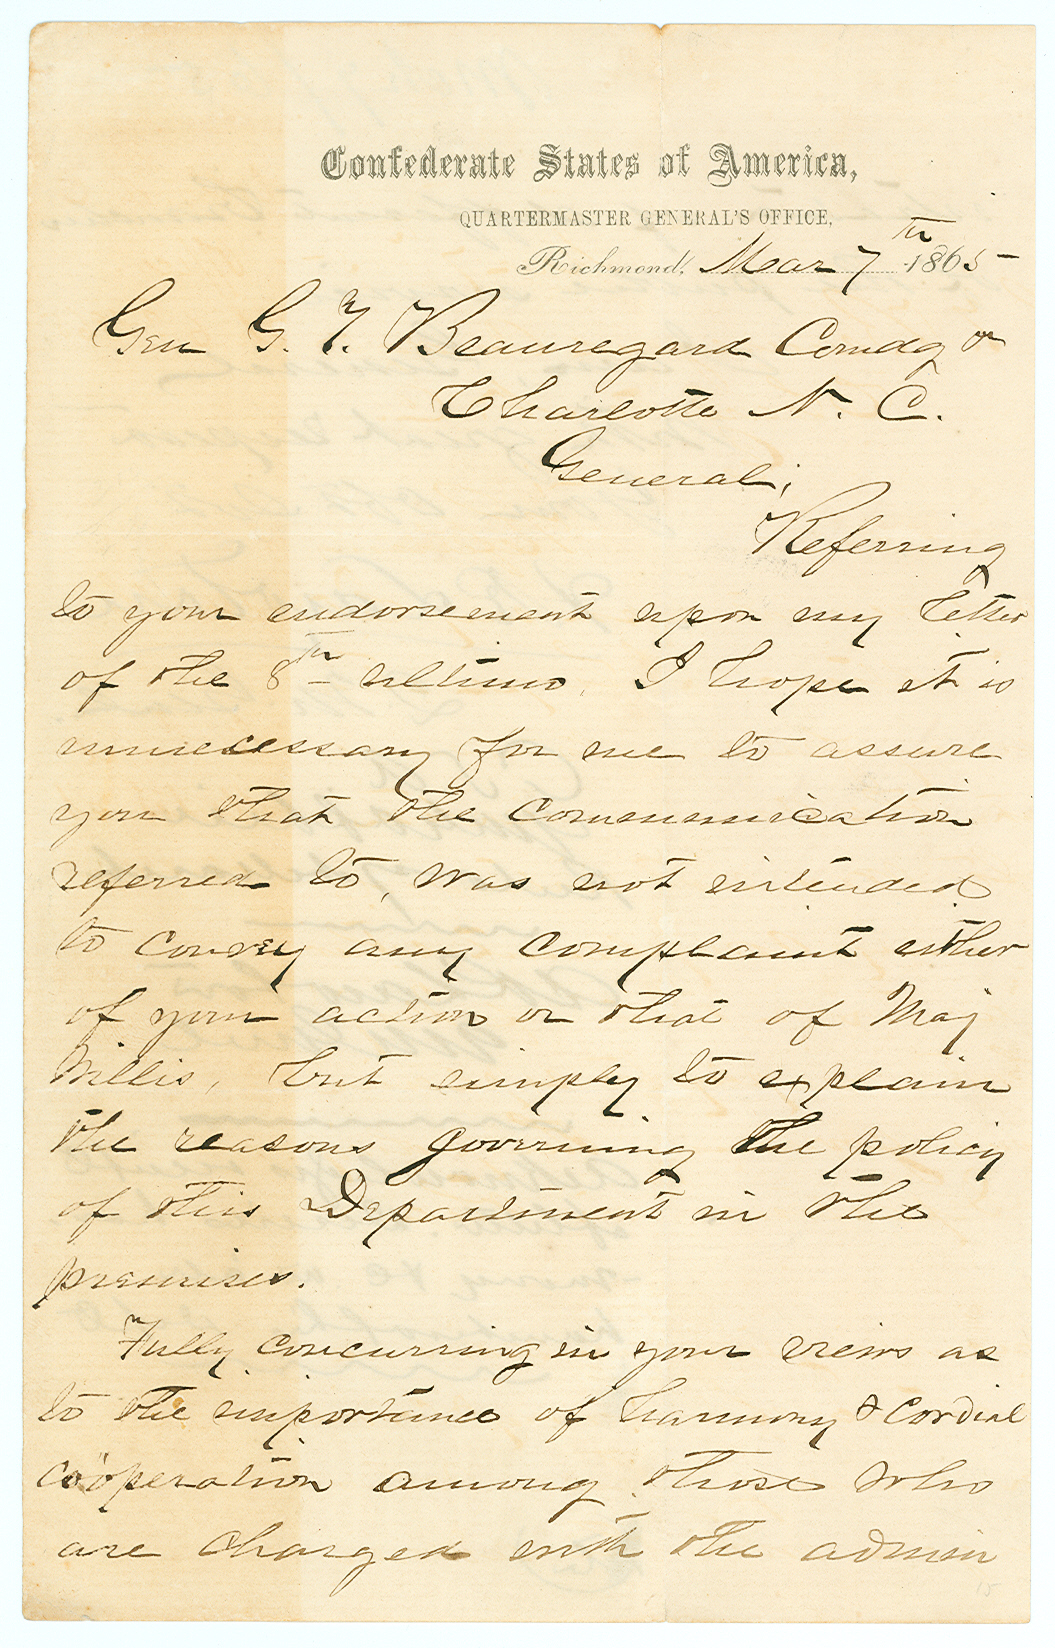 Confederate States of America,
QUARTERMASTER GENERAL'S OFFICE,
Richmond, Mar 7th 1865
Gen G. T. Beauregard Comdg &c
Charlotte N. C.
General;
Referring
to your endorsement upon my letter
of the 8th ultimo, I hope it is
unnecessary for me to assure
you that the communication
referred to, was not intended
to convey any complaint either
of your action or that of Maj
Willis, but simply to explain
the reasons governing the policy
of this Department in the
premises.
Fully concurring in your views as
to the importance of harmony & cordial
coöperation among those who
are charged with the admin